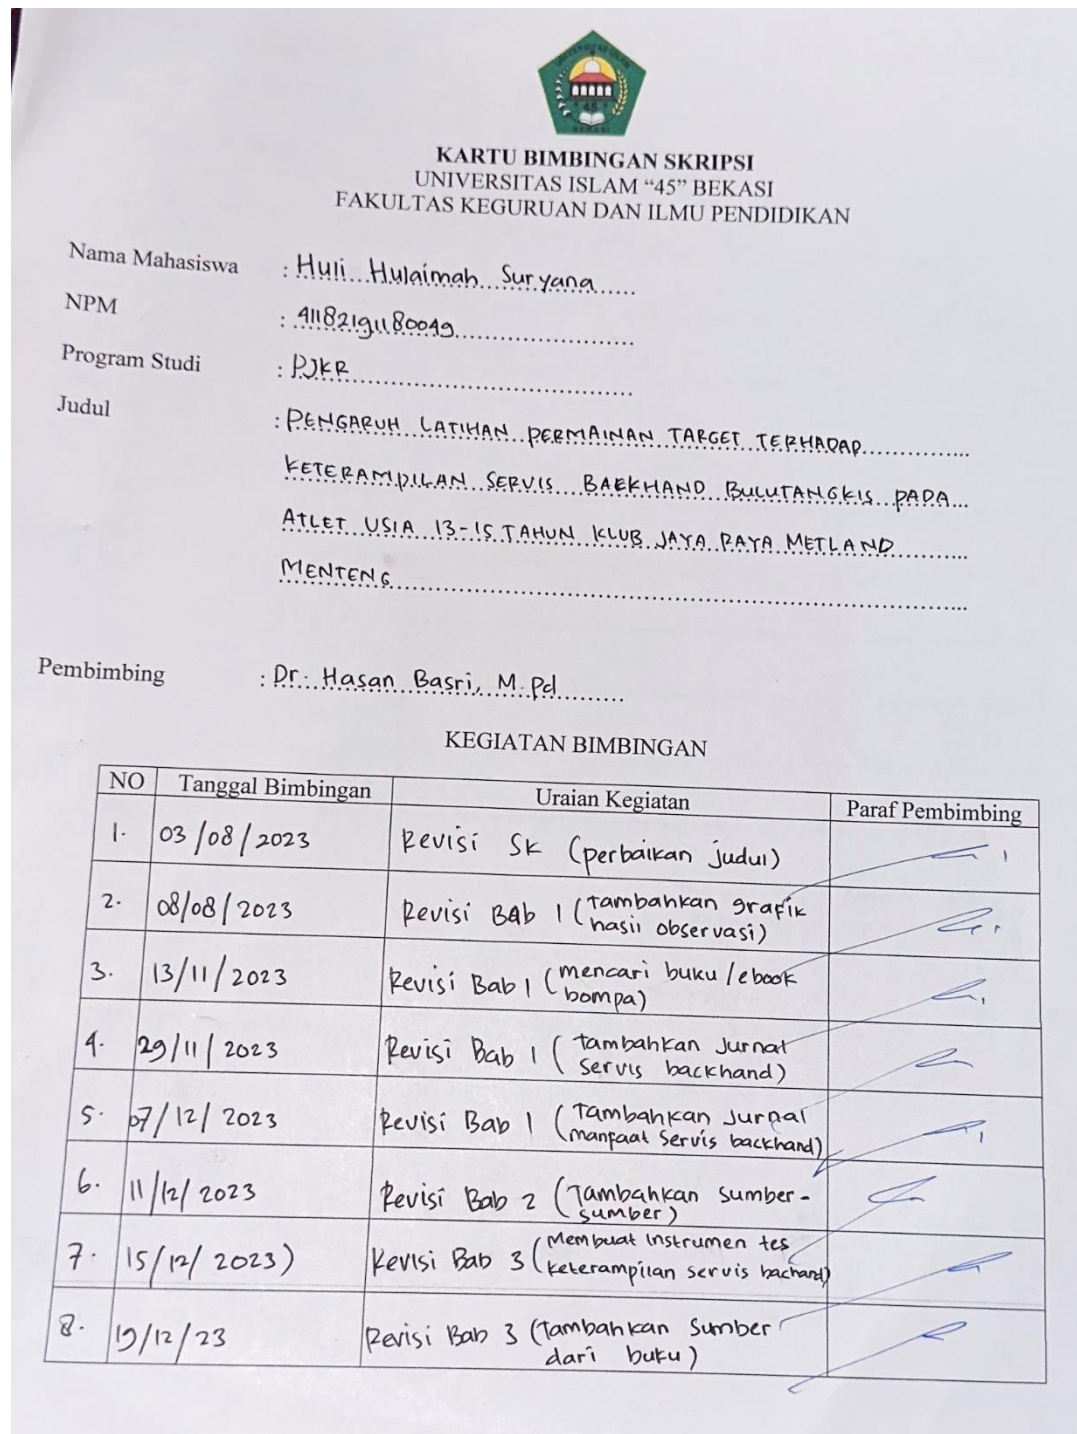 UNIVERSITAS ISLAM
"45"
BEKASI
KARTU BIMBINGAN SKRIPSI
UNIVERSITAS ISLAM “45” BEKASI
FAKULTAS KEGURUAN DAN ILMU PENDIDIKAN
Nama Mahasiswa : Huli Hulaimah Suryana
NPM : 41182191180049
Program Studi : PJKR
Judul : PENGARUH LATIHAN PERMAINAN TARGET TERHADAP
KETERAMPILAN SERVIS BAEKHAND BULUTANGKIS PADA
ATLET USIA 13-15 TAHUN KLUB JAYA RAYA METLAND
MENTENG
Pembimbing : Dr. Hasan Basri, M.Pd
KEGIATAN BIMBINGAN
NO Tanggal Bimbingan Uraian Kegiatan Paraf Pembimbing
1. 03/08/2023 Revisi SK (perbaikan judul)
2. 08/08/2023 Revisi Bab 1 (tambahkan grafik
hasil observasi)
3. 13/11/2023 Revisi Bab 1 (mencari buku/ebook
bompa)
4. 29/11/2023 Revisi Bab 1 (tambahkan Jurnal
servis backhand)
5. 07/12/2023 Revisi Bab 1 (Tambahkan Jurnal
manfaat servis backhand)
6. 11/12/2023 Revisi Bab 2 (Tambahkan sumber-
sumber)
7. 15/12/2023) Revisi Bab 3 (Membuat instrumen tes
keterampilan servis bachand)
8. 19/12/23 Revisi Bab 3 (Tambahkan Sumber
dari buku)